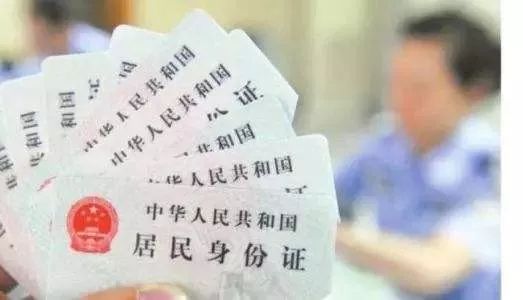 国
中华人民共和国
中华人民共和国
份证
中华人民共和国
中华人民共和国
中华人民共和国
居民身份证